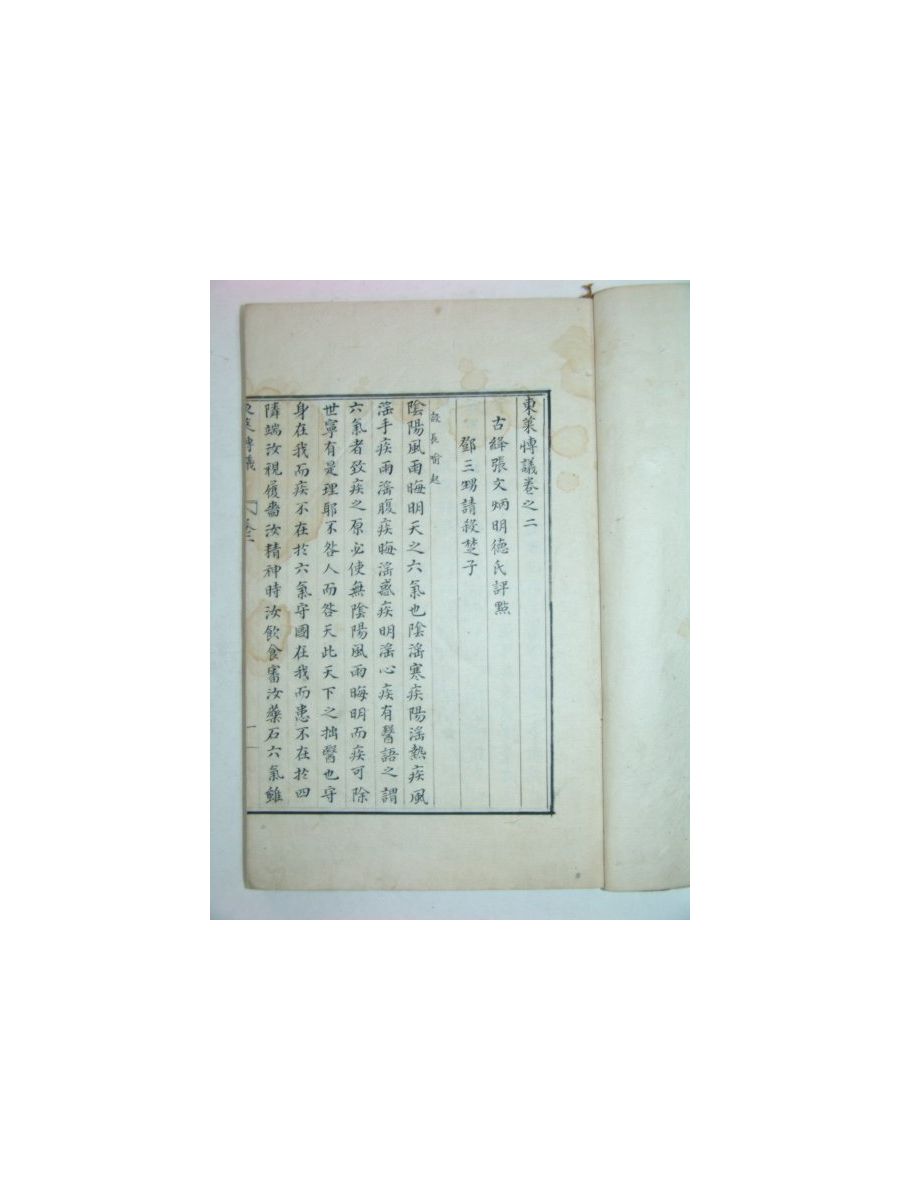 東萊博議卷之二
古絳張文炳明德氏評點
鄧三甥請殺楚子
設長喻起
陰陽風雨晦明天之六氣也陰淫寒疾陽淫熱疾風
淫手疾雨淫腹疾晦淫惑疾明淫心疾有醫語之謂
六氣者致疾之原必使無陰陽風雨晦明而疾可除
世寧有是理耶不咎人而咎天此天下之拙醫也守
身在我而疾不在於六氣守國在我而患不在於四
隣端汝視履嗇汝精神時汝飲食審汝藥石六氣雖
東萊博議 卷二 一